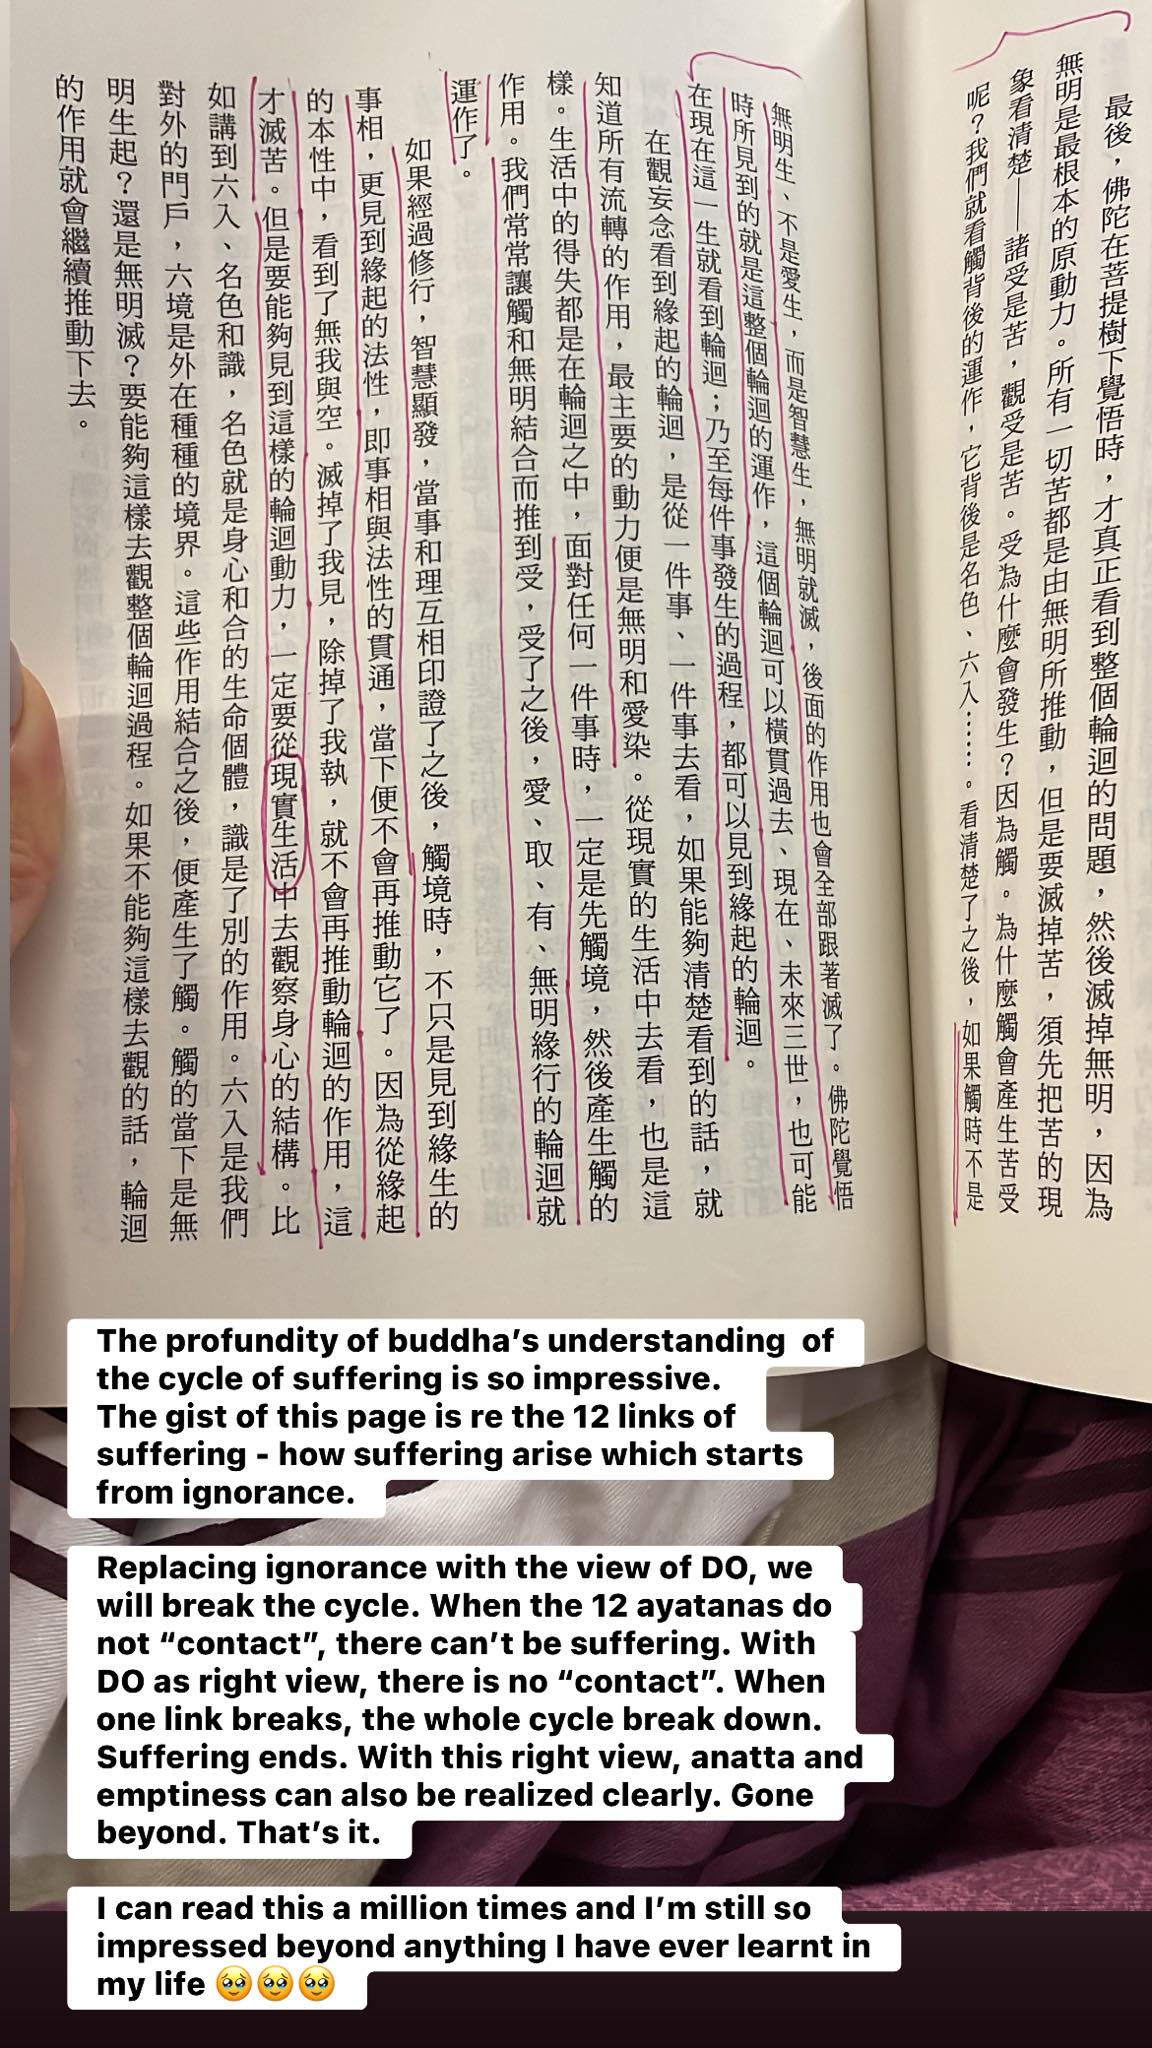 最後，佛陀在菩提樹下覺悟時，才真正看到整個輪迴的問題，然後滅掉無明，因為
無明是最根本的原動力。所有一切苦都是由無明所推動，但是要滅掉苦，須先把苦的現
象看清楚——諸受是苦，觀受是苦。受為什麼會發生？因為觸。為什麼觸會產生苦受
呢？我們就看觸背後的運作，它背後是名色、六入……。看清楚了之後，如果觸時不是
無明生、不是愛生，而是智慧生，無明就滅，後面的作用也會全部跟著滅了。佛陀覺悟
時所見到的就是這整個輪迴的運作，這個輪迴可以橫貫過去、現在、未來三世，也可能
在現在這一生就看到輪迴；乃至每件事發生的過程，都可以見到緣起的輪迴。
在觀妄念看到緣起的輪迴，是從一件事、一件事去看，如果能夠清楚看到的話，就
知道所有流轉的作用，最主要的動力便是無明和愛染。從現實的生活中去看，也是這
樣。生活中的得失都是在輪迴之中，面對任何一件事時，一定是先觸境，然後產生觸的
作用。我們常常讓觸和無明結合而推到受，受了之後，愛、取、有、無明緣行的輪迴就
運作了。
如果經過修行，智慧顯發，當事和理互相印證了之後，觸境時，不只是見到緣生的
事相，更見到緣起的法性，即事相與法性的貫通，當下便不會再推動它了。因為從緣起
的本性中，看到了無我與空。滅掉了我見，除掉了我執，就不會再推動輪迴的作用，這
才滅苦。但是要能夠見到這樣的輪迴動力，一定要從現實生活中去觀察身心的結構。比
如講到六入、名色和識，名色就是身心和合的生命個體，識是了別的作用。六入是我們
對外的門戶，六境是外在種種的境界。這些作用結合之後，便產生了觸。觸的當下是無
明生起？還是無明滅？要能夠這樣去觀整個輪迴過程。如果不能夠這樣去觀的話，輪迴
的作用就會繼續推動下去。
The profundity of buddha’s understanding of
the cycle of suffering is so impressive.
The gist of this page is re the 12 links of
suffering - how suffering arise which starts
from ignorance.
Replacing ignorance with the view of DO, we
will break the cycle. When the 12 ayatanas do
not “contact”, there can’t be suffering. With
DO as right view, there is no “contact”. When
one link breaks, the whole cycle break down.
Suffering ends. With this right view, anatta and
emptiness can also be realized clearly. Gone
beyond. That’s it.
I can read this a million times and I’m still so
impressed beyond anything I have ever learnt in
my life 🥹🥹🥹